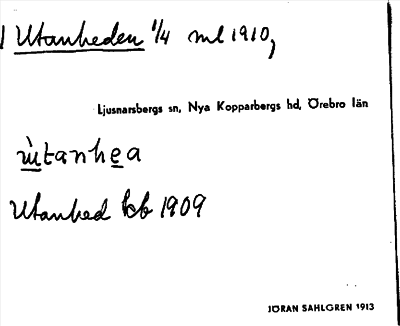 Utanheden 1/4 ml 1910,
Ljusnarsbergs sn, Nya Kopparbergs hd, Örebro län
ùtanhea
Utanhed kb 1909
JÖRAN SAHLGREN 1913